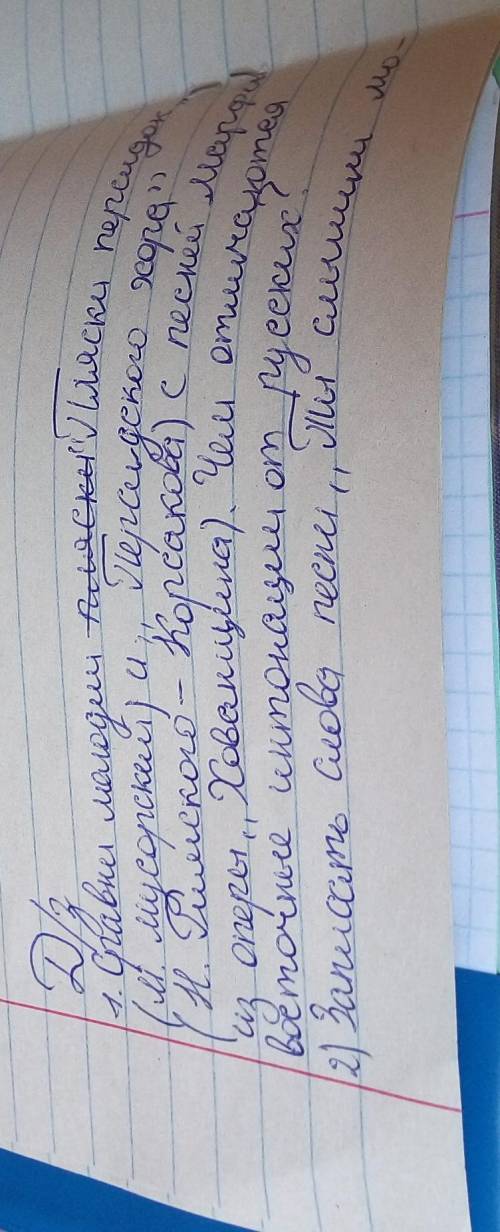 Д/з
1. Сравни мелодии ~~пляски~~ "Пляски персидок"
(М. мусорский) и „Персидского хора"
(Н. Римского-Корсакова) с песней Марфы
из оперы „Хованщина). Чем отличаются
восточные интонации от русских?
2) Записать слова песни „Ты слышишь мо-